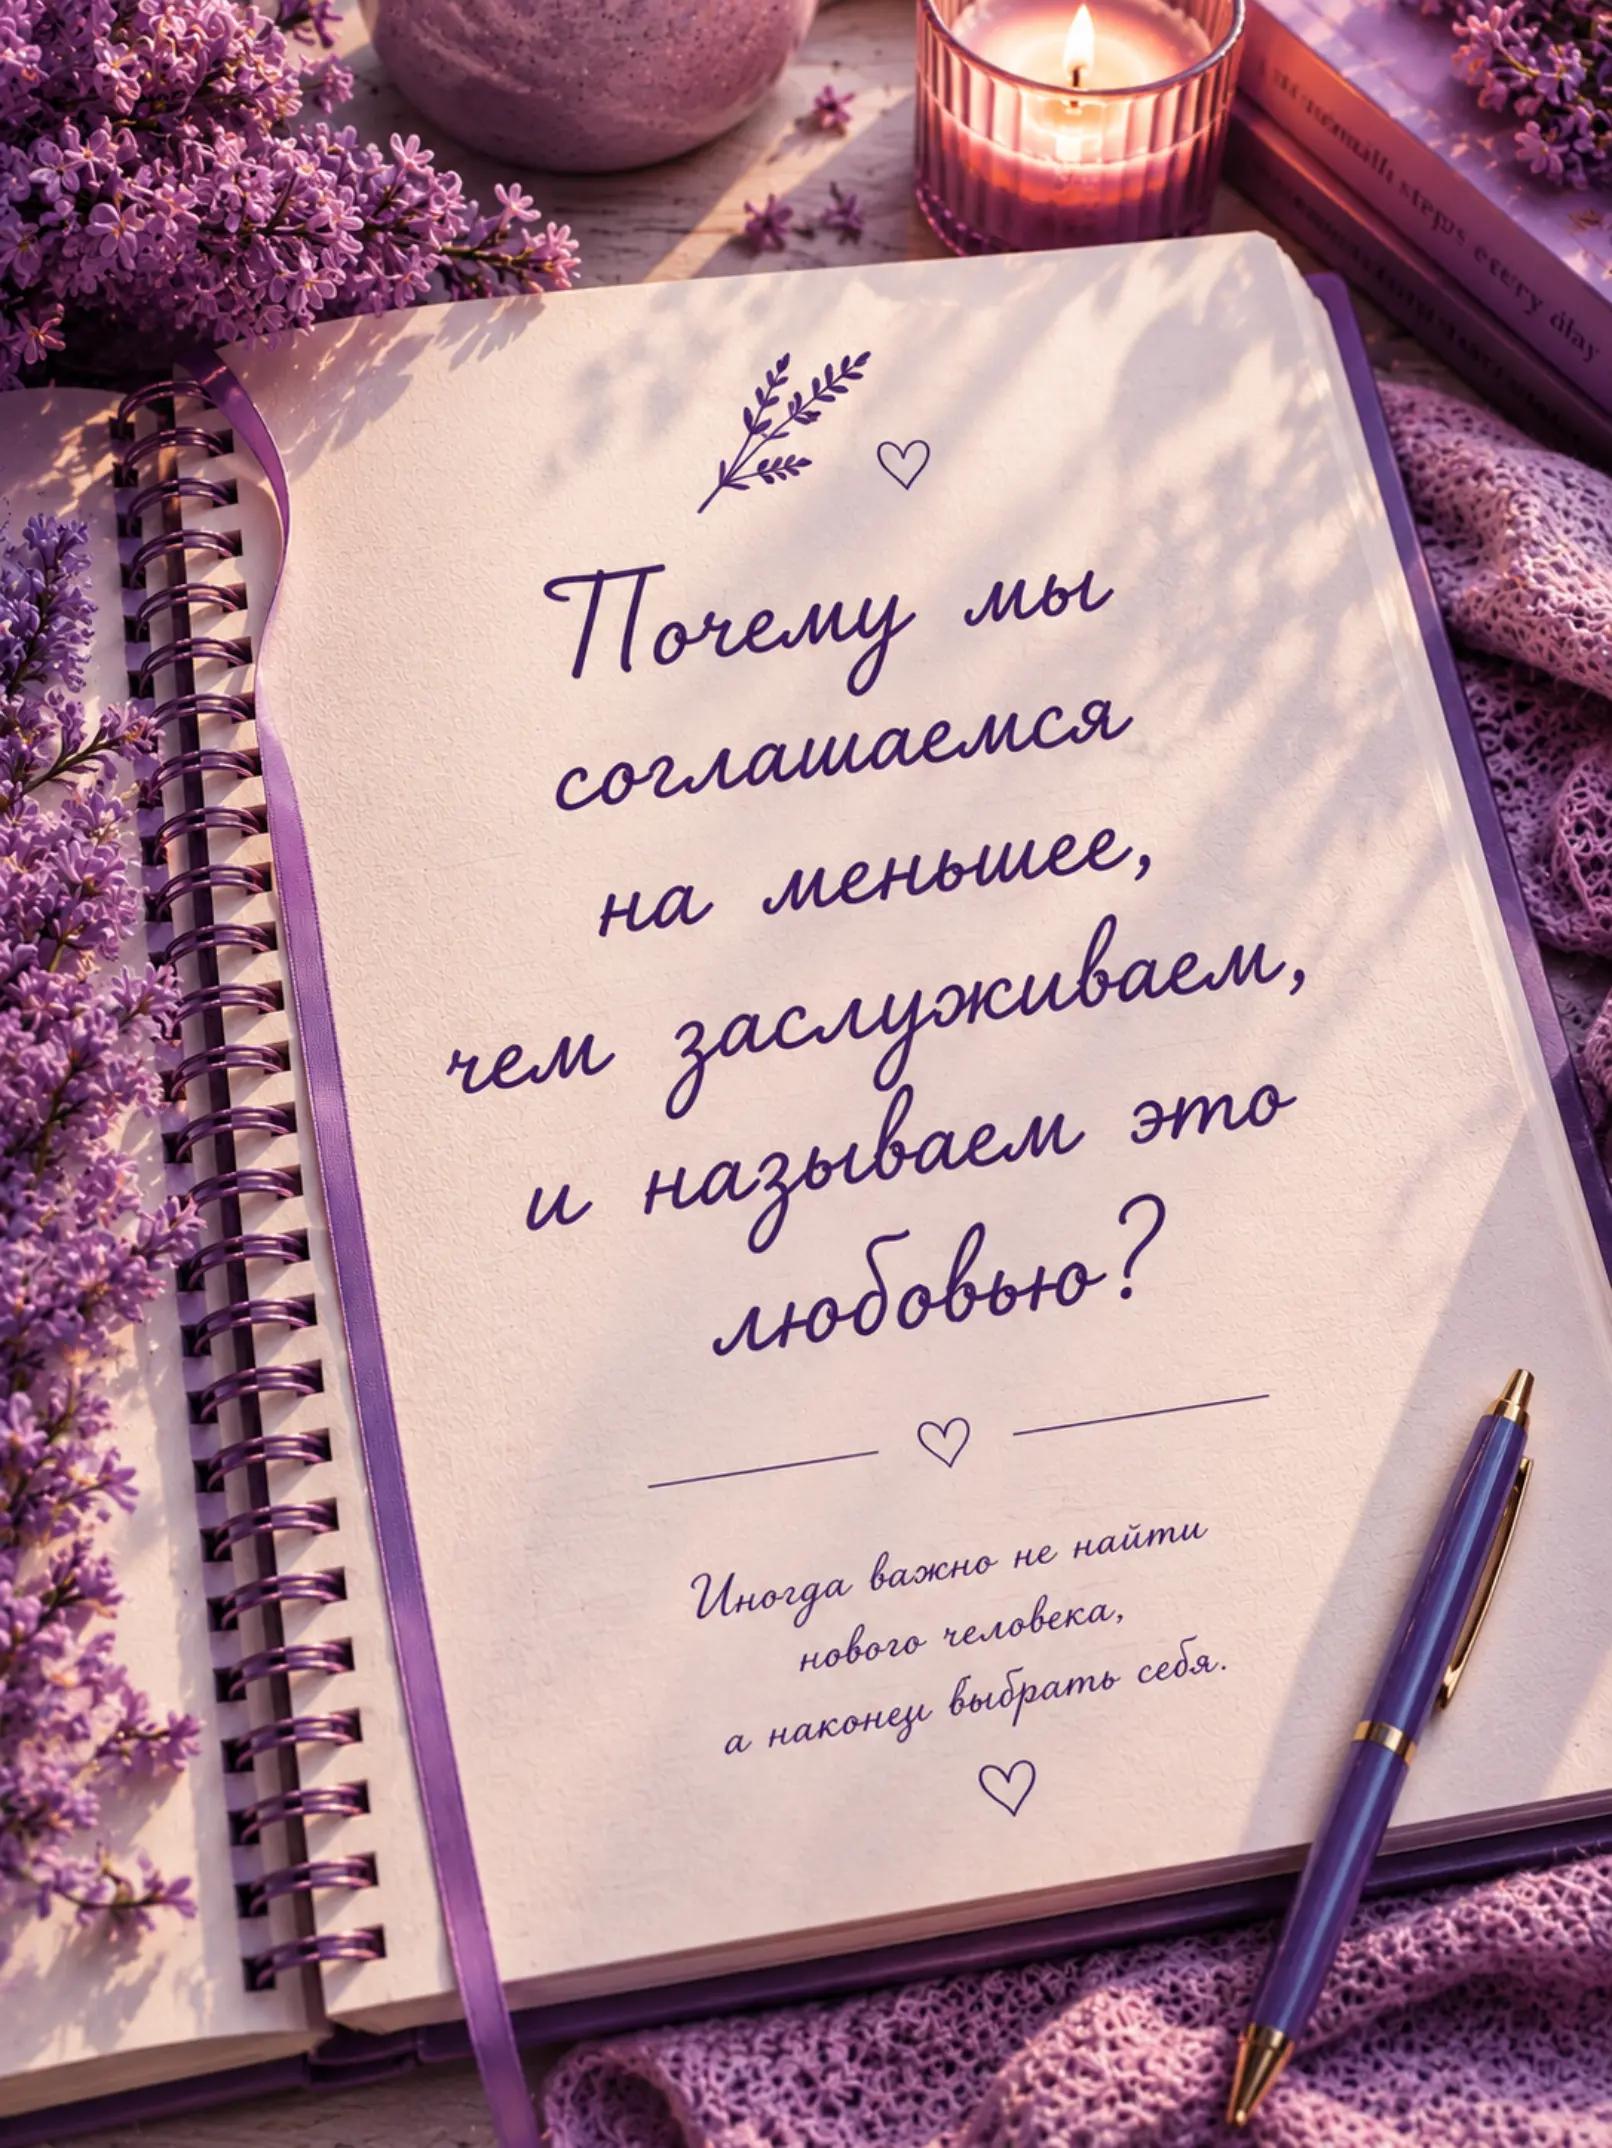 Почему мы
соглашаемся
на меньшее,
чем заслуживаем,
и называем это
любовью?
Иногда важно не найти
нового человека,
а наконец выбрать себя.
steps every day